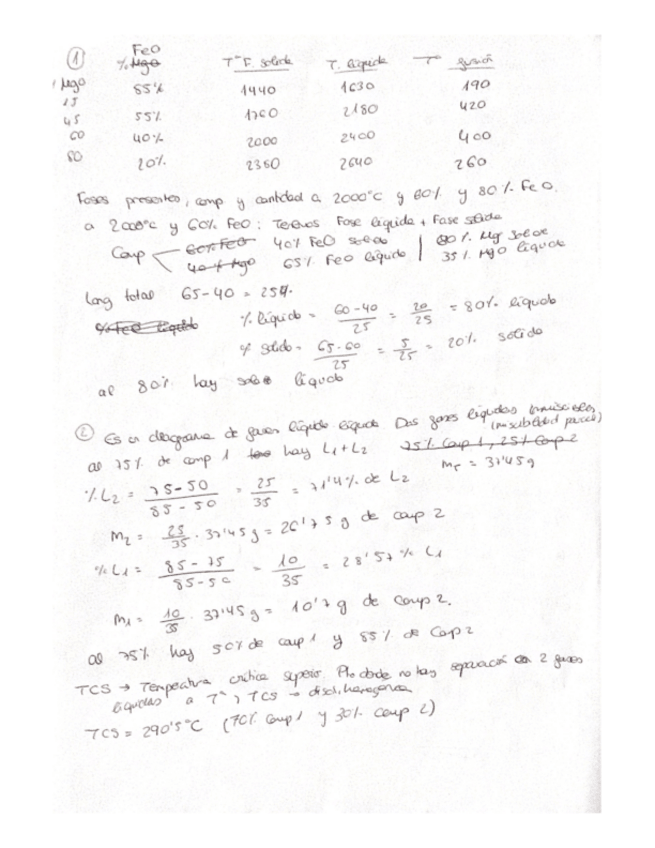 ① FeO
% MgO T° F. solida T. líquida T° fusión
% MgO
15 85% 1440 1630 190
45 55% 1760 2180 420
60 40% 2000 2400 400
80 20% 2380 2640 260
Fases presentes, comp y cantidad a 2000°C y 60% y 80% FeO.
a 2000°C y 60% FeO: Tenemos Fase líquida + Fase sólida
Comp 60% FeO 40% FeO solido | 60% Mg solido
40% MgO 65% FeO líquido | 35% MgO líquido
Long total 65-40 = 25%.
% Feo líquido % líquido = 60-40 / 25 = 20/25 = 80% líquido
% solido = 65-60 / 25 = 5/25 = 20% sólido
al 80% hay solo líquido
② Es un diagrama de fases líquido líquido Dos fases líquidas inmiscibles
(miscibilidad parcial)
al 75% de comp 1 hay L1+L2 75% comp 1, 25% comp 2
mT = 37'45g
% L2 = 75-50 / 85-50 = 25/35 = 71'4% de L2
M2 = 25/35 · 37'45g = 26'75 g de comp 2
% L1 = 85-75 / 85-50 = 10/35 = 28'57% L1
M1 = 10/35 · 37'45g = 10'7g de comp 2.
al 75% hay 50% de comp 1 y 85% de Comp 2
TCS → Temperatura crítica superior. Pto donde no hay separación en 2 fases
líquidas a T° > TCS → disol. homogénea
TCS = 290'5°C (70% comp 1 y 30% comp 2)